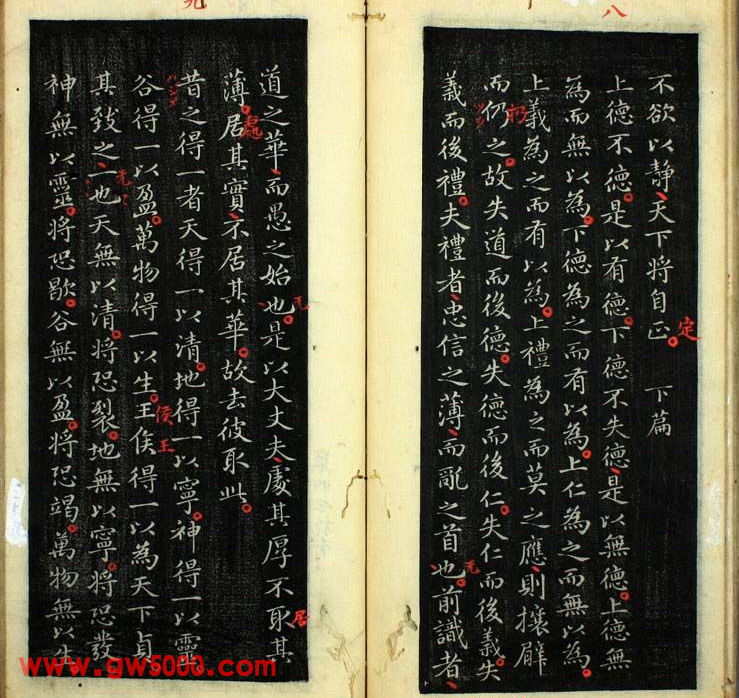 八
不欲以靜天下將自正 下篇
定
上德不德。是以有德。下德不失德、是以無德。上德無
為而無以為。下德為之而有以為。上仁為之而無以為。
上義為之而有以為。上禮為之而莫之應、則攘臂
扔
而仍之。故失道而後德。失德而後仁。失仁而後義。失
義而後禮。夫禮者、忠信之薄、而亂之首也。前識者、
无
九
道之華、而愚之始也。是以大丈夫、處其厚不取其
无
居
薄。居其實、不居其華。故去彼取此。
處
昔之得一者天得一以清。地得一以寧。神得一以靈。
谷得一以盈。萬物得一以生。王侯得一以為天下貞
侯王
其致之、一也天無以清。將恐裂。地無以寧。將恐發
无
神無以靈。將恐歇。谷無以盈。將恐竭。萬物無以生
www.gw5000.com